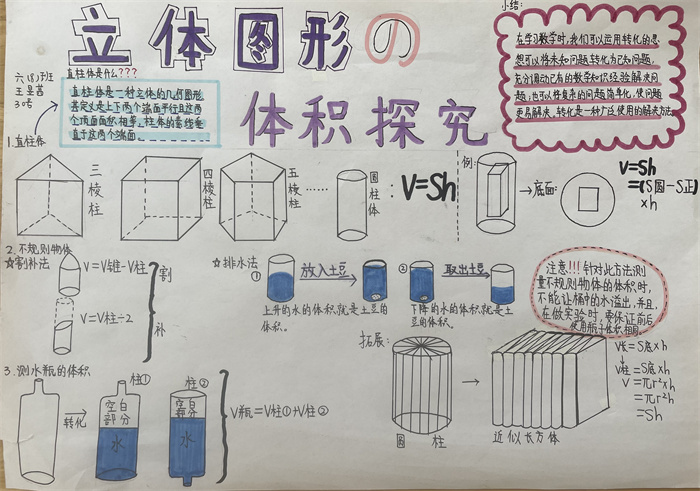 立体图形の
体积探究
六(8)班
王昱茜
30号
直柱体是什么???
直柱体是一种立体的几何图形,
其定义是上下两个端面平行且这两
个顶面面积相等,柱体的素线垂
直于这两个端面。
小结:
在学习数学时,我们可以运用转化的思
想可以将未知问题转化为已知问题,
充分调动已有的数学知识经验解决问
题;也可以将复杂的问题简单化,使问题
更易解决,转化是一种广泛使用的解决方法
1.直柱体
三棱柱
四棱柱
五棱柱
……
圆柱体
:V=Sh
例:
→底面:
V=Sh
=(S圆-S正)
×h
2.不规则物体
☆割补法
V=V锥-V柱
割
V=V柱÷2
补
☆排水法
①
放入土豆
上升的水的体积就是土豆的
体积。
②
取出土豆
下降的水的体积就是土
豆的体积。
注意!!!针对此方法测
量不规则物体的体积时,
不能让桶中的水溢出,并且
在做实验时,要保证前后
使用瓶子体积相同。
拓展:
圆柱
近似长方体
V长=S底×h
V柱=S底×h
V=πr²×h
=πr²h
=Sh
3.测水瓶的体积
转化
柱①
空白
部分
水
柱②
空白
部分
水
V瓶=V柱①+V柱②